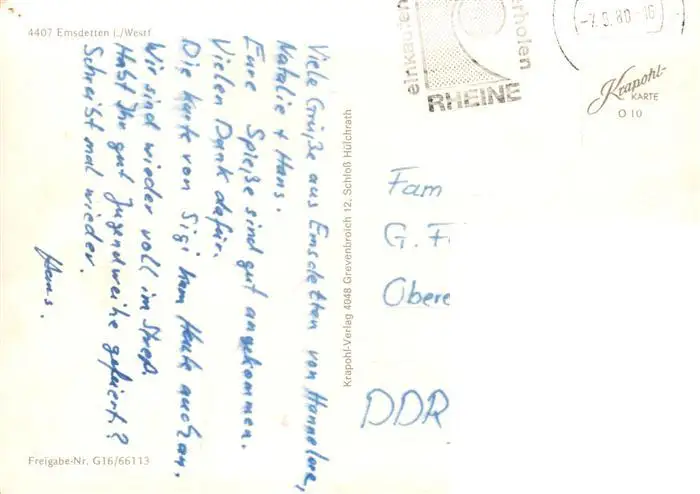 4407 Emsdetten i./Westf
Viele Grüße aus Emsdetten von Hannelore,
Natalie + Hans.
Eure Spieße sind gut angekommen.
Vielen Dank dafür.
Die Karte von Sigi kam Heute auch an.
Wir sind wieder voll im Streß.
Habt Ihr gut Jugendweihe gefeiert?
Schreibt mal wieder.
Hans.
Freigabe-Nr. G16/66113
Krapohl-Verlag 4048 Grevenbroich 12, Schloß Hülchrath
einkaufen
erholen
RHEINE
80-16
Krapohl-
KARTE
O 10
Fam
G. F
Obere
DDR